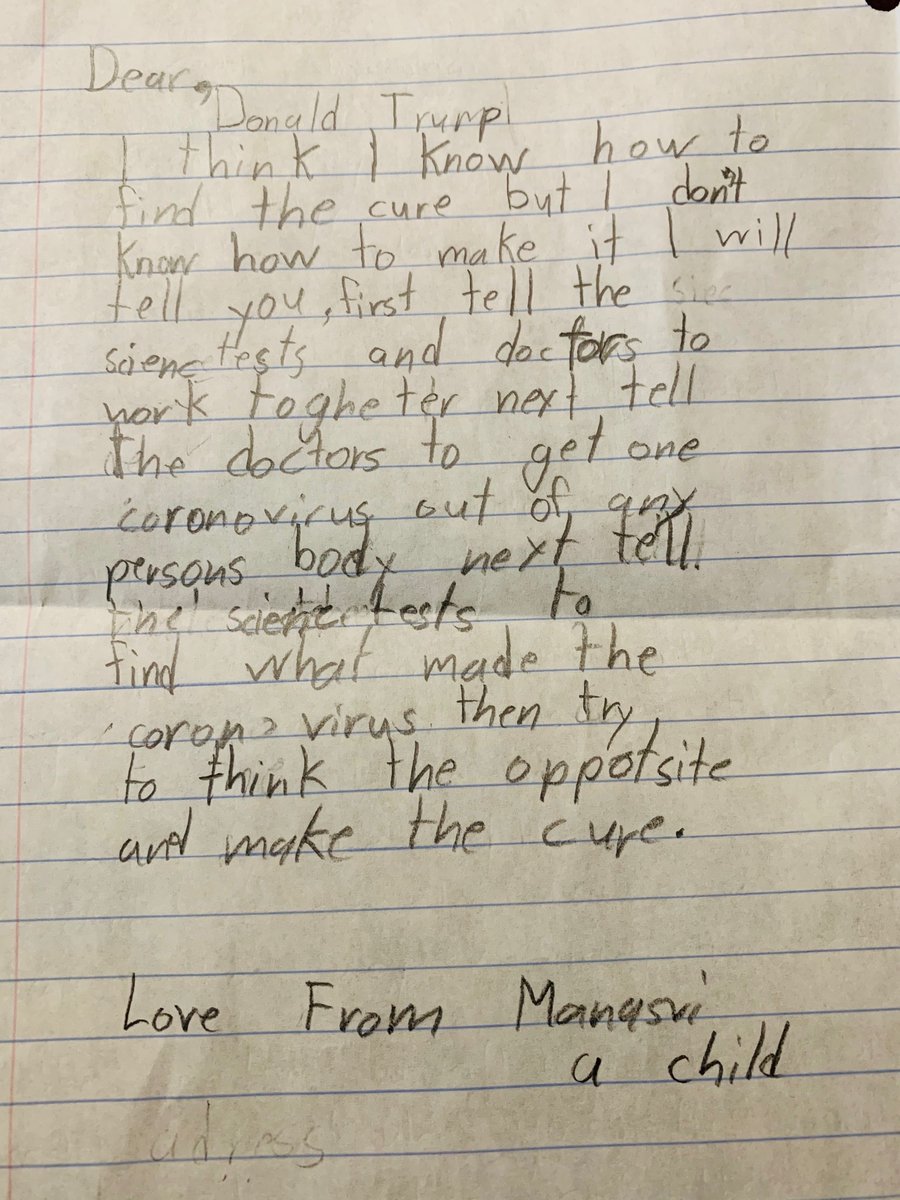 Dear,
Donald Trump
I think I know how to
find the cure but I don't
know how to make it I will
tell you, first tell the siec
scienctests and doctors to
work togheter next tell
the doctors to get one
coronovirus out of any
persons body next tell
the scientetests to
find what made the
corona virus then try
to think the oppotsite
and make the cure.
Love From Manasvi
a child
adress